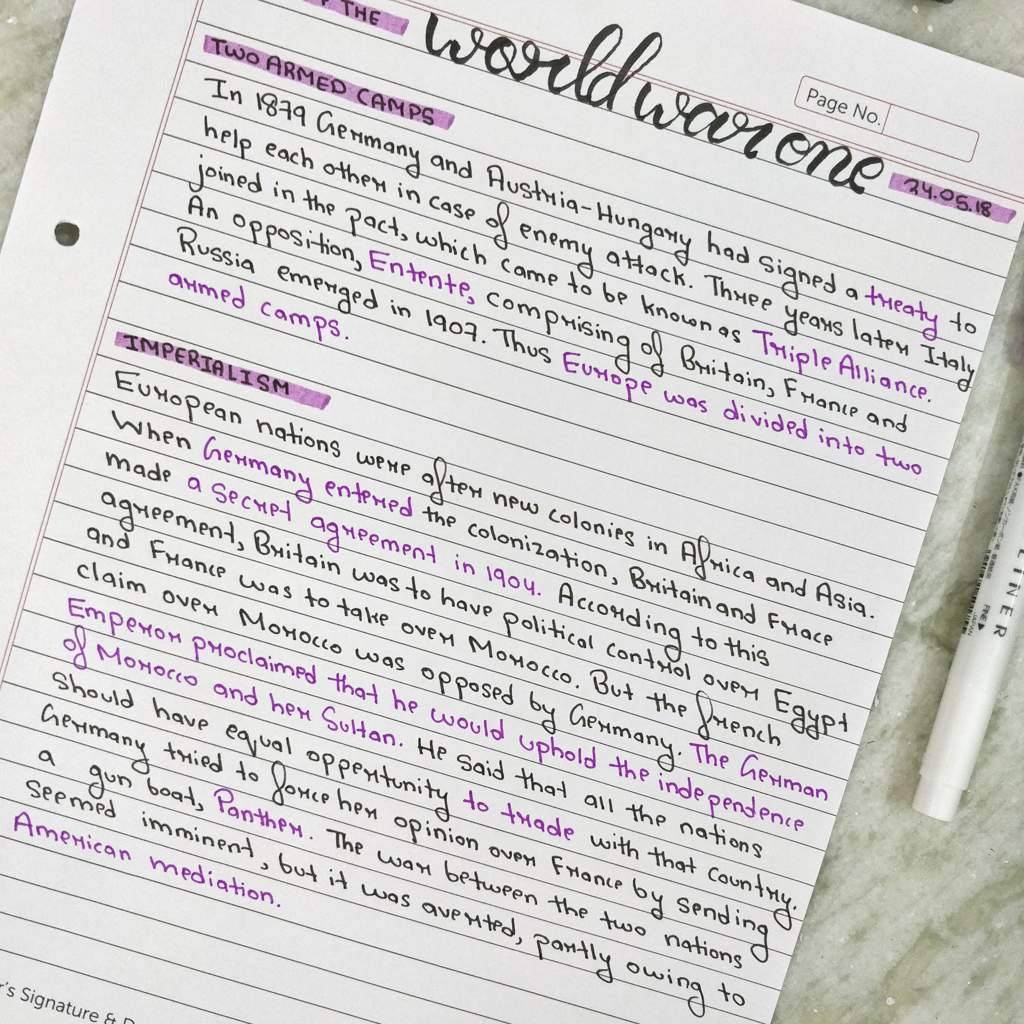 THE
world war one
Page No.
24.05.18
TWO ARMED CAMPS
In 1879 Germany and Austria-Hungary had signed a treaty to
help each other in case of enemy attack. Three years later Italy
joined in the pact, which came to be known as Triple Alliance.
An opposition, Entente, comprising of Britain, France and
Russia emerged in 1907. Thus Europe was divided into two
armed camps.
IMPERIALISM
European nations were after new colonies in Africa and Asia.
When Germany entered the colonization, Britain and Frace
made a secret agreement in 1904. According to this
agreement, Britain was to have political control over Egypt
and France was to take over Morocco. But the french
claim over Morocco was opposed by Germany. The German
Emperor proclaimed that he would uphold the independence
of Morocco and her Sultan. He said that all the nations
should have equal opportunity to trade with that country.
Germany tried to force her opinion over France by sending
a gun boat, Panther. The war between the two nations
seemed imminent, but it was averted, partly owing to
American mediation.
's Signature &
LINER
FINE